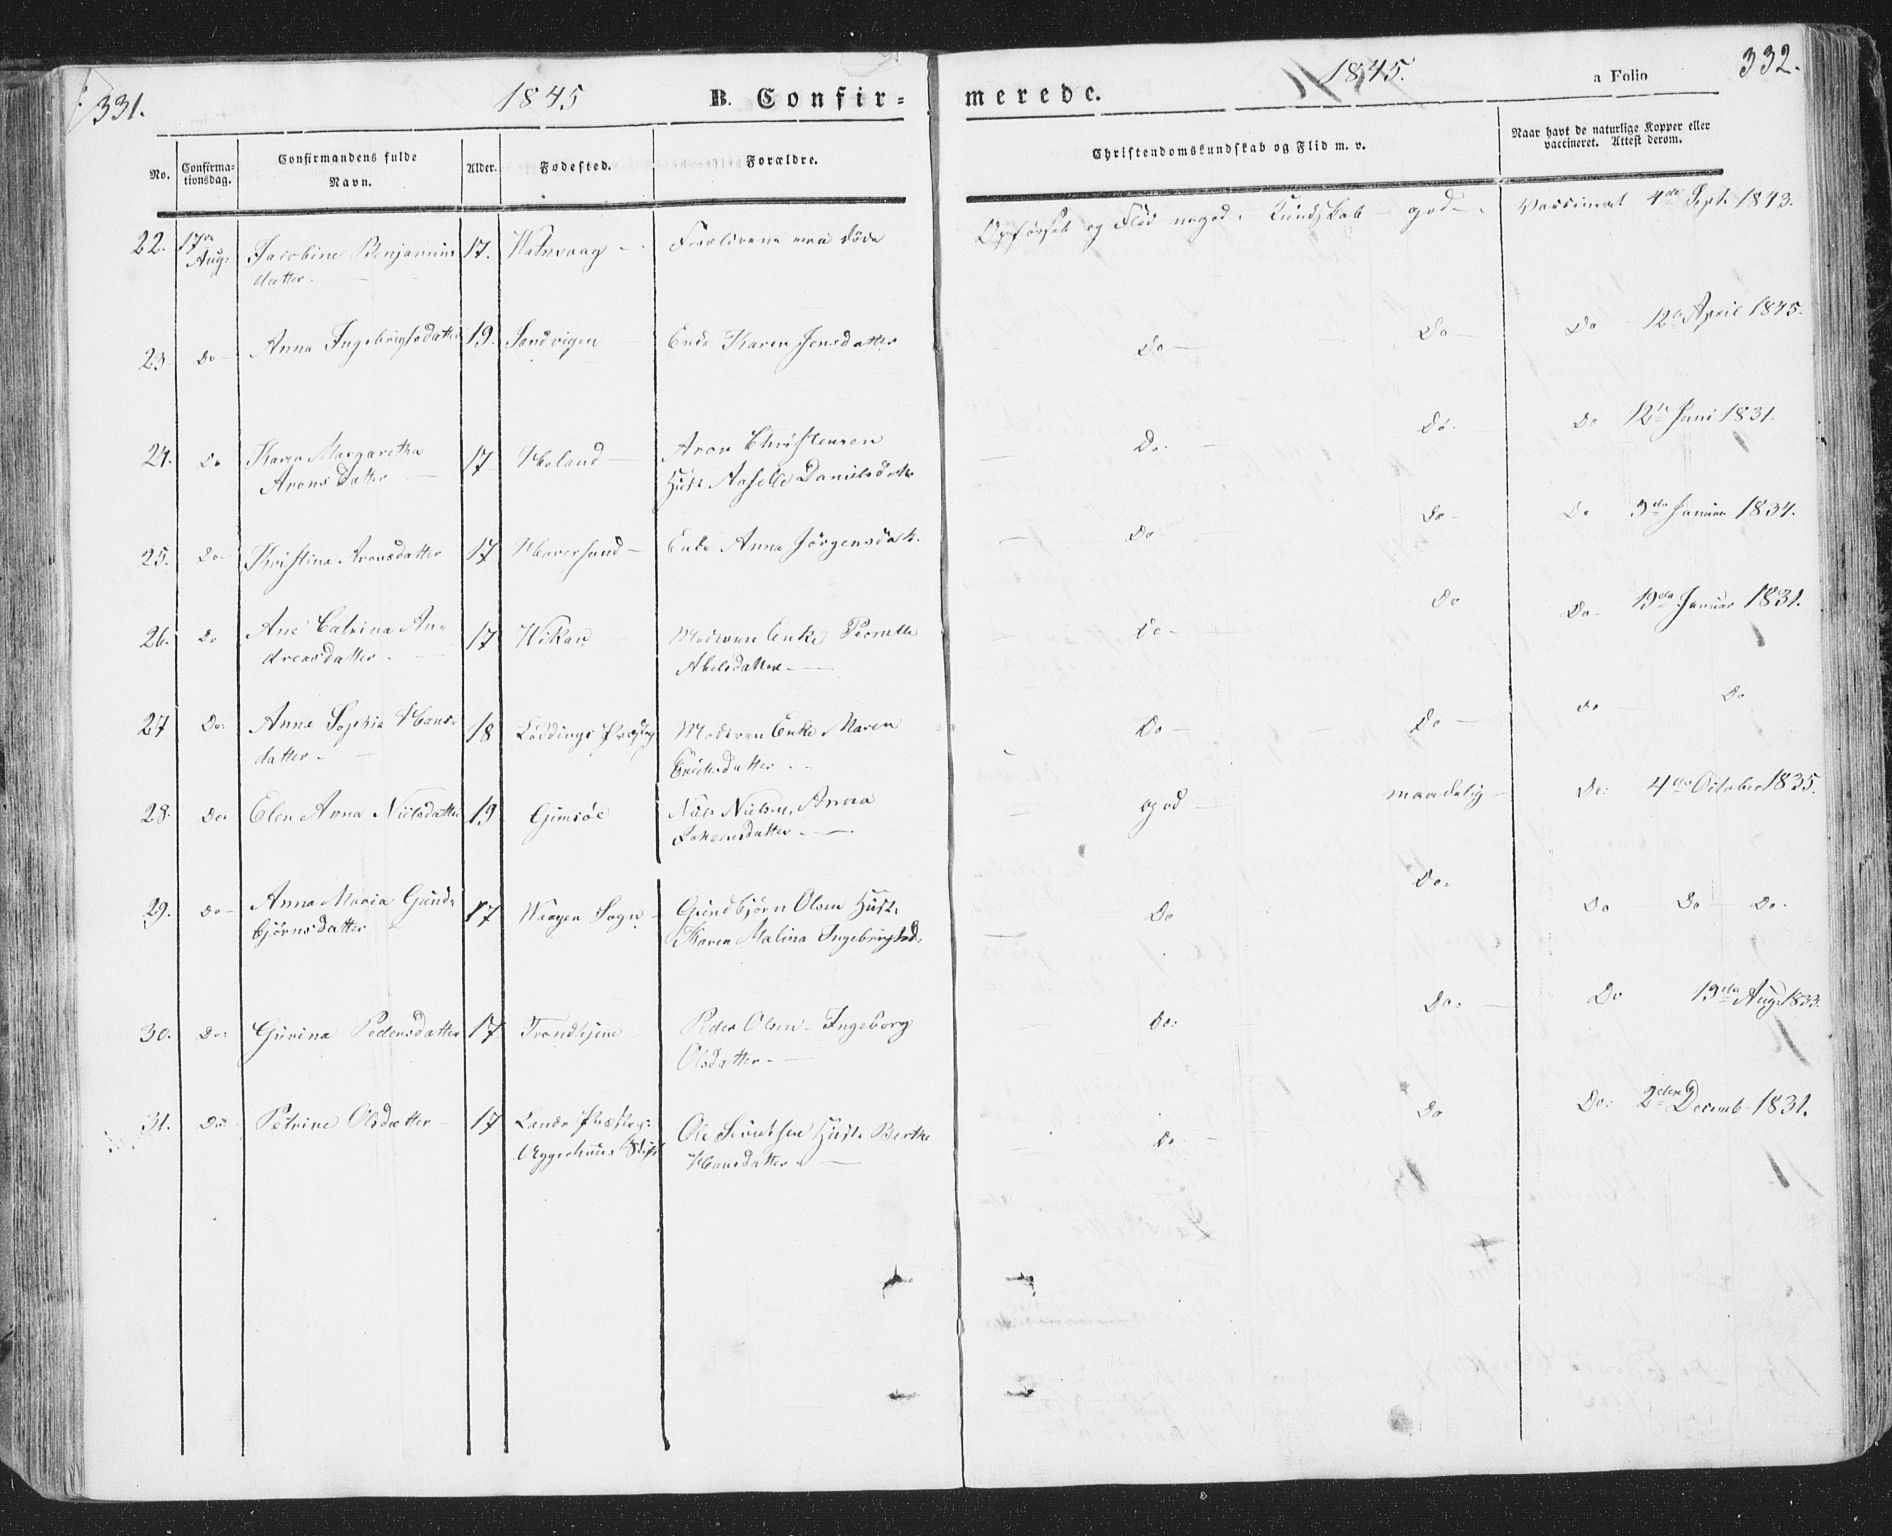 331.
1845
B. Confir-
No.
Confirma-
tionsdag.
Confirmandens fulde
Navn.
Alder.
Fødested.
Forældre.
22. 17de Aug: Jacobine Benjamins 17. Forældrene ere døde
datter.
23 Do Anna Ingebrigtsdatter 19. Sandvigen Enke Karen Jensdatter
24. Do Karen Margaretha 17 Holand Aron Christensen
Arons Datter Hust. Danielsdatter
25. Do Kristina Aronsdatter 17 Haversand Enke Anna Jörgensdatt.
26. Do Ane Catrina An- 17 Vikan Moderen Enke
dreasdatter. Abelsdatter
27 Do: Anna Sophia Hans- 18 Løddings Præsteg Moderen Enke Maren
datter Eriksdatter
28. Do Elen Anna Nielsdatter 19 Gimsöe Niels Nielsen, Anna
29. Do Anna Maria Gund- 17 Waagen Sogn Gundbjörn Olsen Hust.
björnsdatter Karen Malina Ingebrigtsd.
30. Do: Gurina Pedersdatter 17 Trondhjem Peder Olsen Ingeborg
Olsdatter
31. Do Petrine Olsdatter 17 Præsteg: Ole Hust. Berthe
Aggerhuus Stift Hansdatter
332.
1845.
a Folio
merede.
Christendomskundskab og Flid m. v.
Naar havt de naturlige Kopper eller
vaccineret. Attest derom.
Opførsel og Flid meget. Kundskab god. Vaccineret 4de Sept. 1843.
Do Do Do 12te April 1845.
Do. Do. Do 12te Juni 1831.
Do Do Do 3de Januar 1834.
Do. Do Do. 19de Januar 1831.
Do Do Do Do
god maadelig Do: 4de October 1835.
Do Do. Do Do Do.
Do: Do: Do 13de Aug. 1833.
Do Do Do: 2den Decemb. 1831.